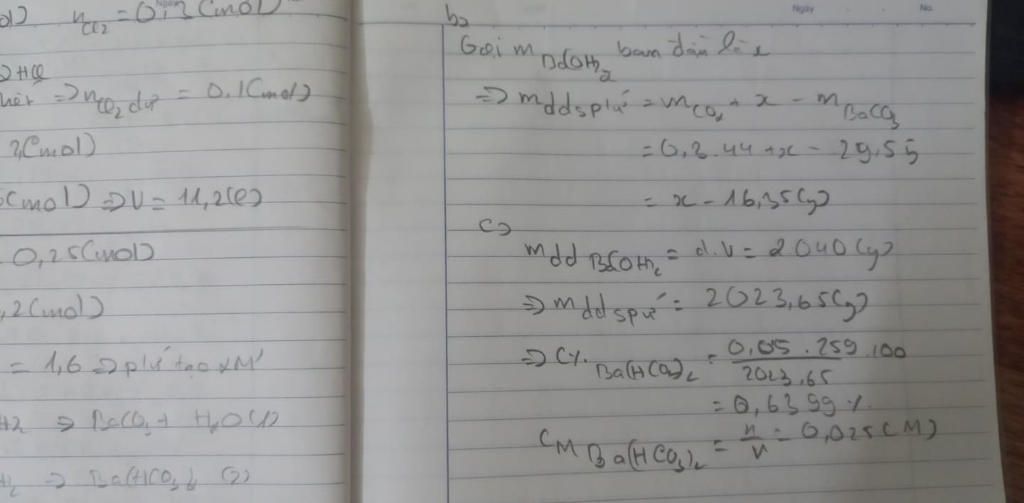 d) n CO2 = 0,3 (mol)
⇒ n CO2 dư = 0,1 (mol)
(mol)
(mol) ⇒ V = 11,2 (l)
0,25 (mol)
,2 (mol)
= 1,6 ⇒ pứ tạo 2 M'
⇒ BaCO3 + H2O (1)
⇒ Ba(HCO3)2 (2)
Ngày No.
b,
Gọi m Ba(OH)2 ban đầu là x
⇒ m dd spứ = m CO2 + x - m BaCO3
= 0,3.44 + x - 29,55
= x - 16,35 (g)
c,
m dd Ba(OH)2 = d.V = 2040 (g)
⇒ m dd spứ = 2023,65 (g)
⇒ C% Ba(HCO3)2 = 0,05.259.100 / 2023,65
= 0,6399 %
CM Ba(HCO3)2 = n/V = 0,025 (M)